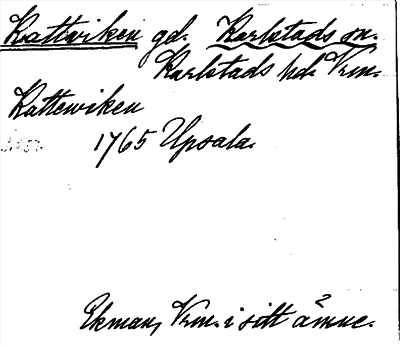 Kattviken gd. Karlstads sn.
Karlstads hd. Vrm.
Kattewiken
1765 Upsala.
Ekman, Vrm. i sitt ämne.